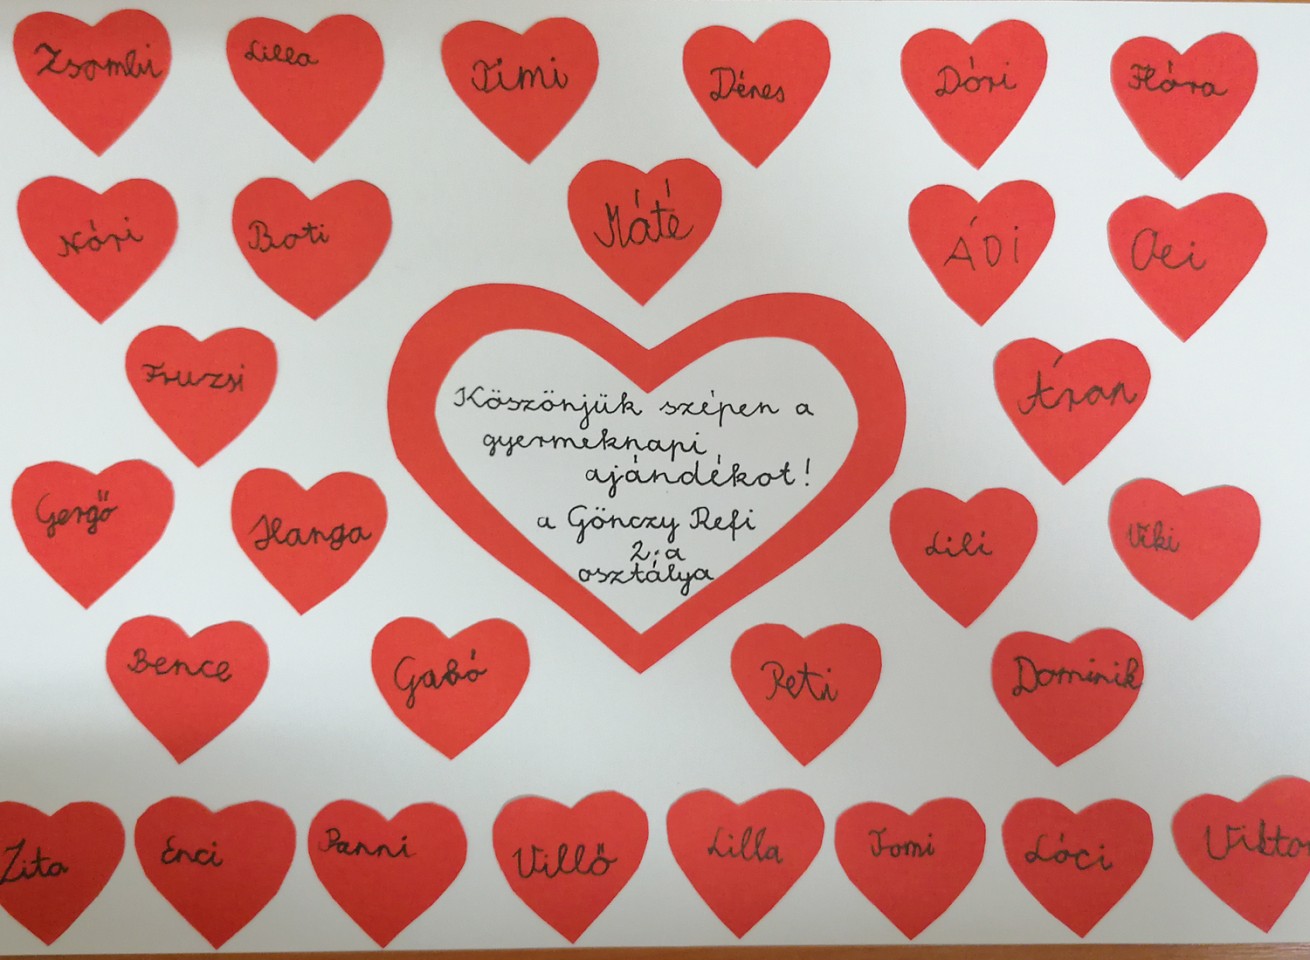 Zsombi Lilla Timi Dénes Dóri Flóra
Máté
Nóri Boti ÁDI
Fruzsi Áron
Köszönjük szépen a
gyermeknapi
ajándékot!
a Gönczy Refi
2. a
osztálya
Gergő Hanga Lili Viki
Bence Gabó Peti Dominik
Zita Enci Panni Villő Lilla Tomi Lóci Viktor